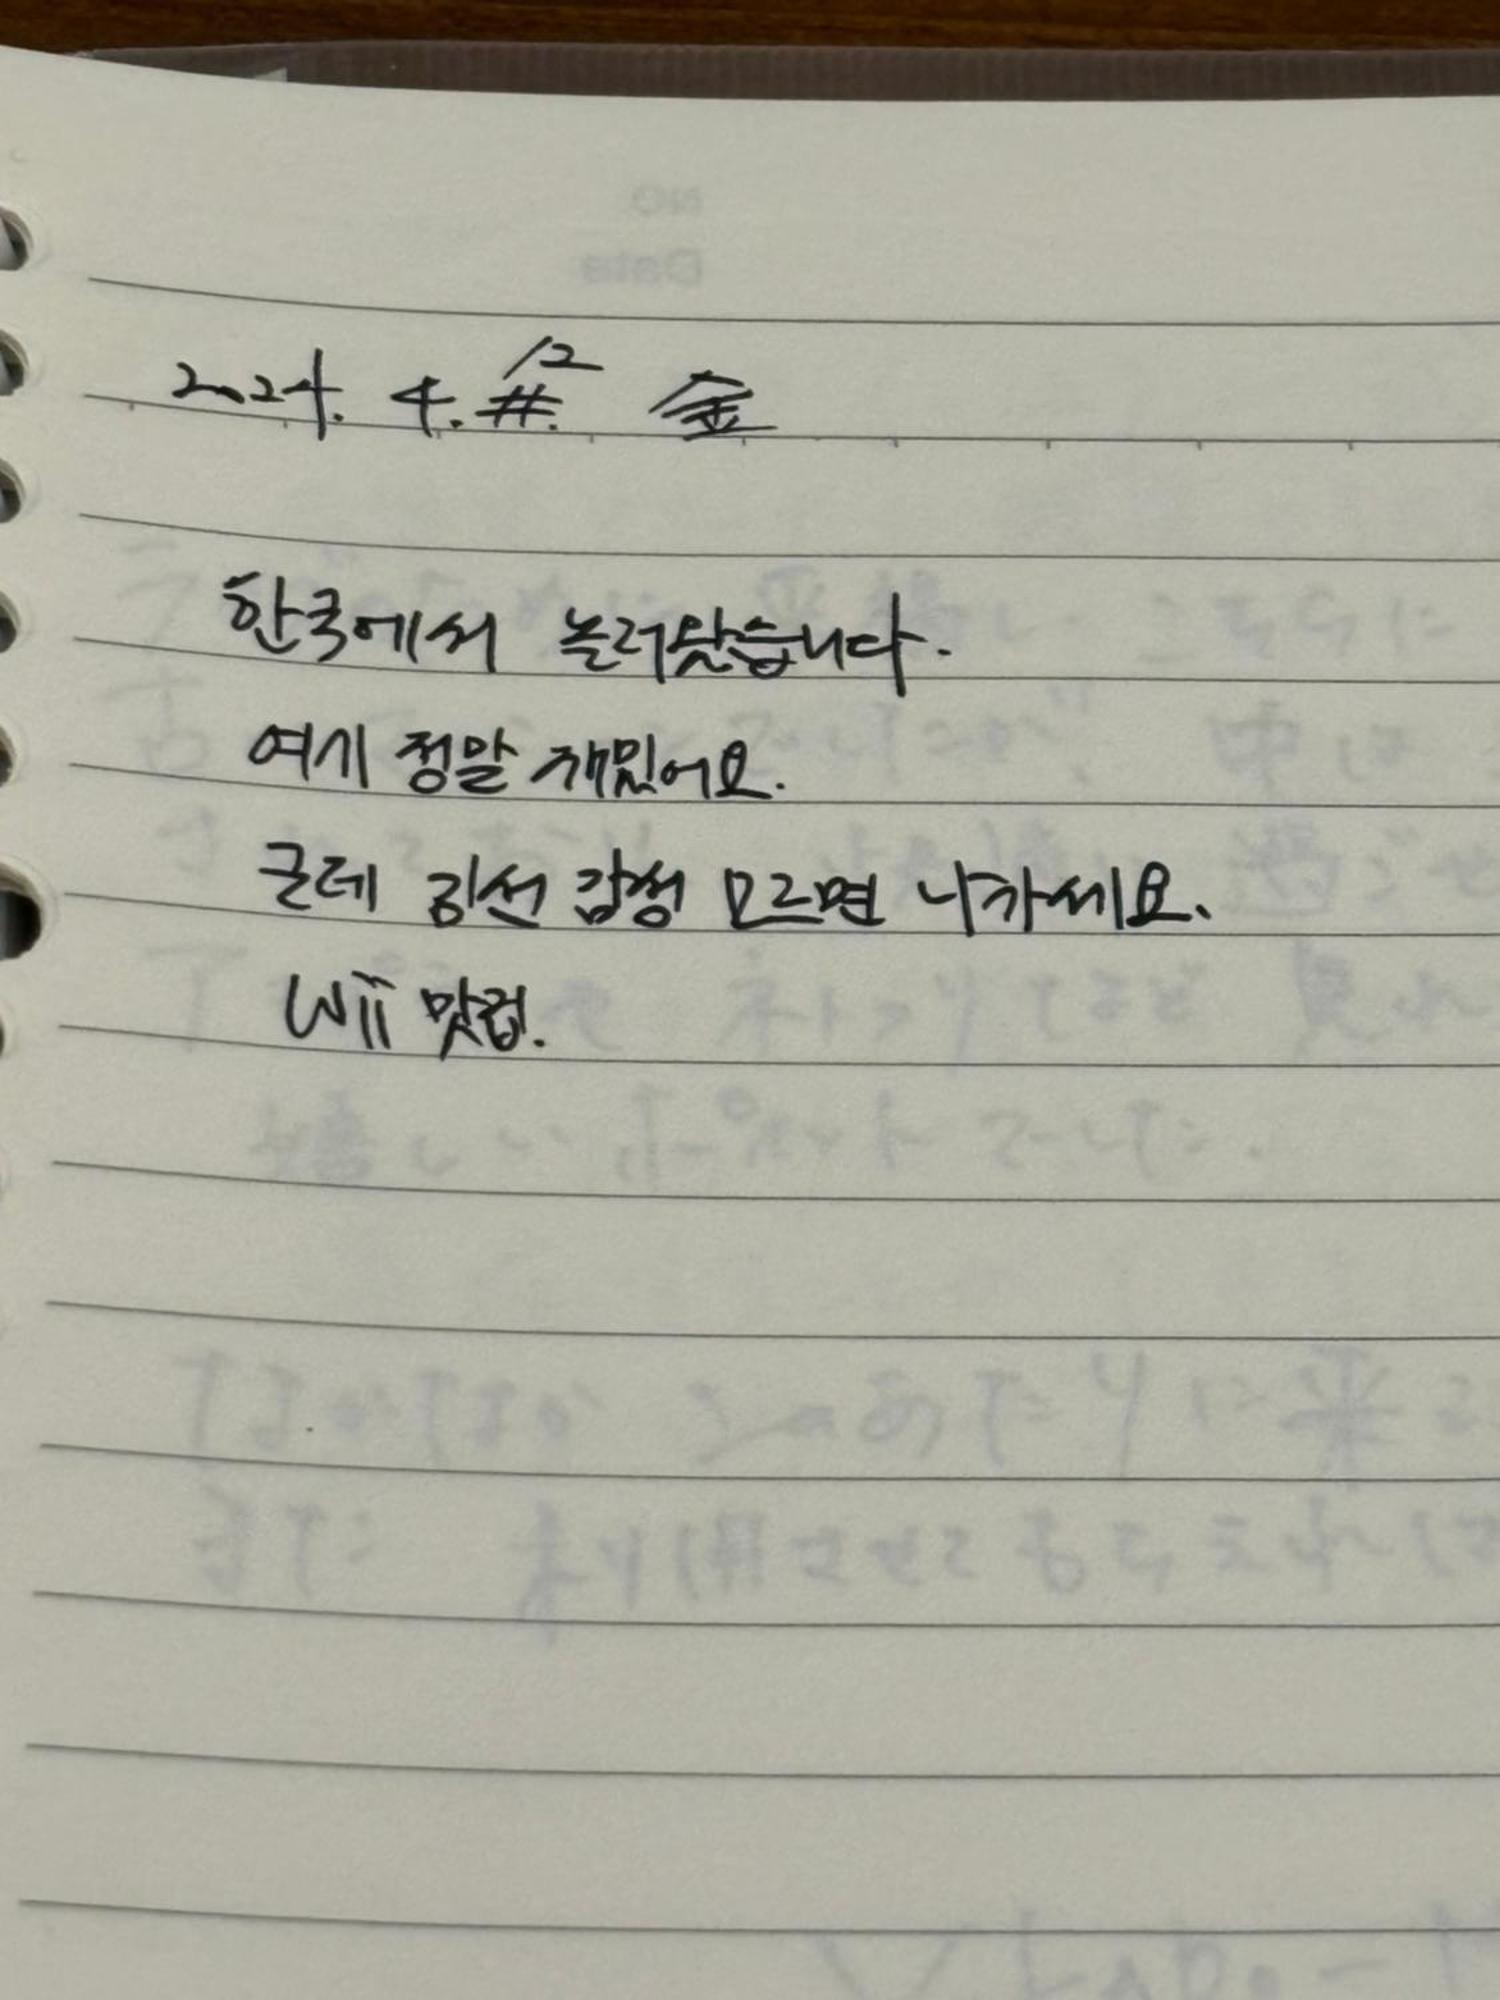 2024. 4. 12 金
한국에서 놀러왔습니다.
여기 정말 재밌어요.
근데 감성 모르면 나가세요.
Wii 맛집.